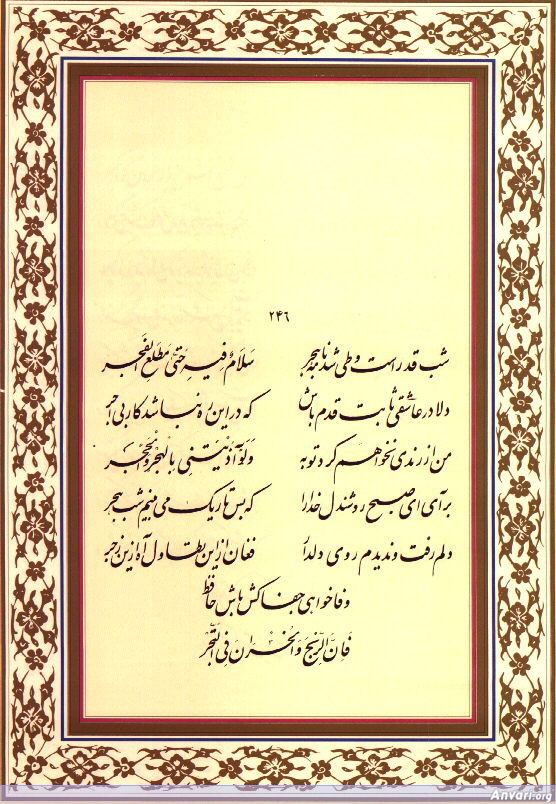 ۲۴۶
شب قدر است و طی شد نامه هجر سَلامٌ فیهِ حَتّی مَطلَعِ الفَجر
دلا در عاشقی ثابت قدم باش که در این ره نباشد کار بی اجر
من از رندی نخواهم کرد توبه وَلَو آذَیتَنی بِالهَجرِ وَالحَجر
برآی ای صبح روشندل خدارا که بس تاریک می بینم شب هجر
دلم رفت و ندیدم روی دلدار فغان از این تطاول آه از این زجر
وفا خواهی جفا کش باش حافظ
فَاِنَّ الرِّبحَ وَالخُسرانَ فِی التَّجر
Anvari.org